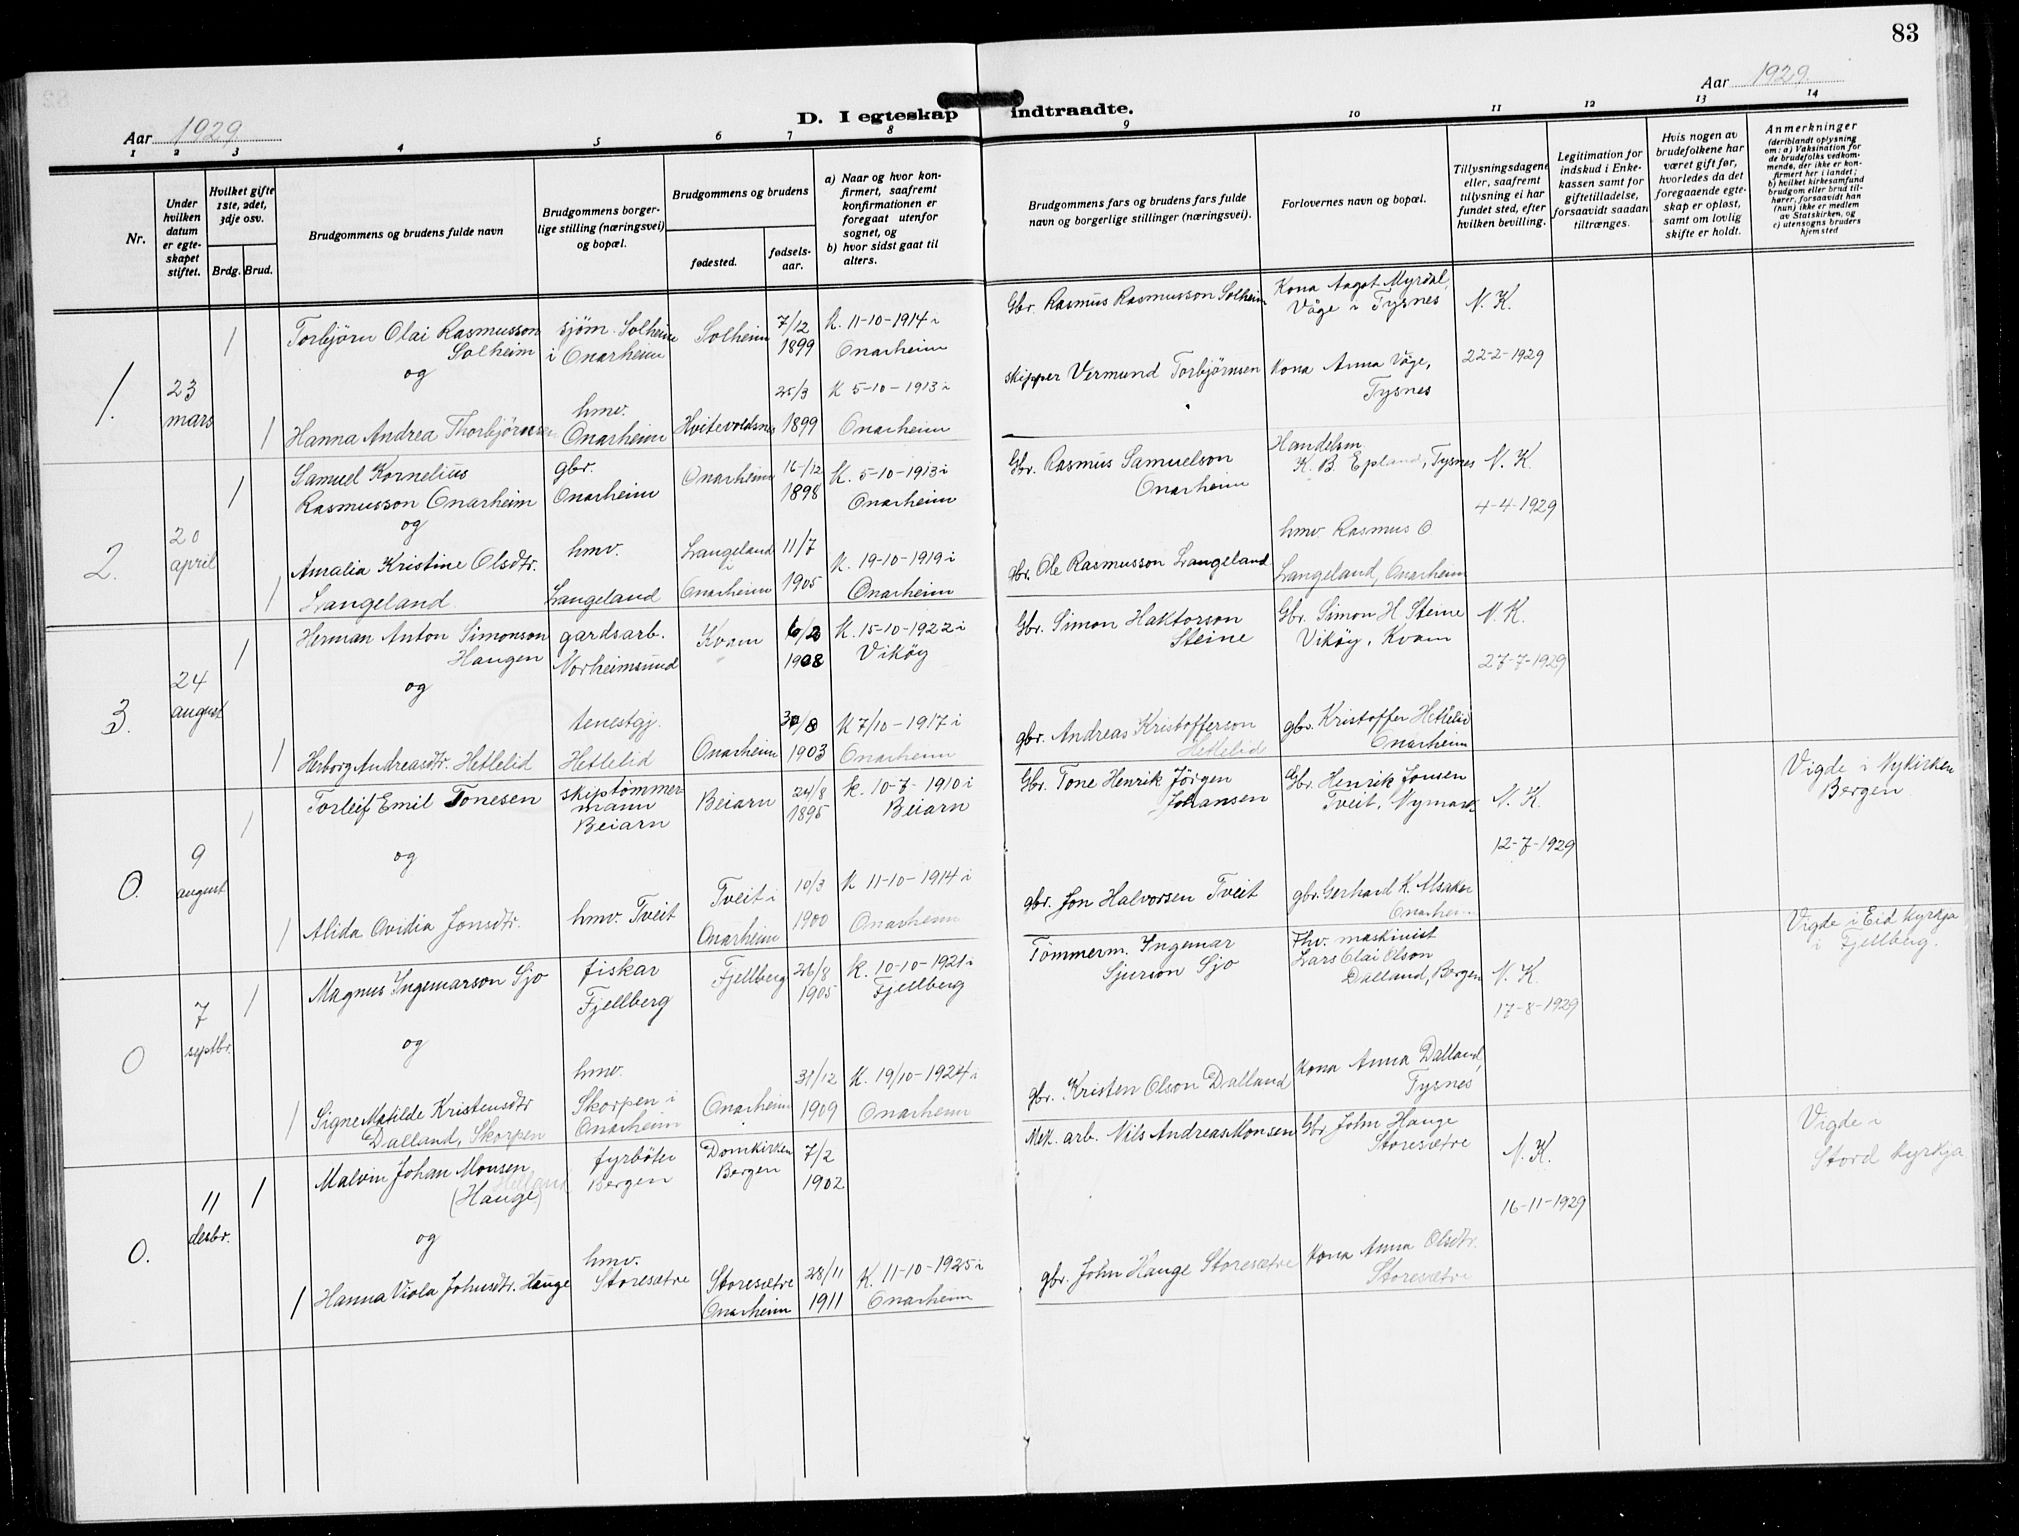 83
Aar 1929
D. I egteskap indtraadte.
Aar 1929.
1 2 3 4 5 6 7 8 9 10 11 12 13 14
Nr.
Under hvilken datum er egteskapet stiftet.
Hvilket gifte 1ste, 2det, 3dje osv.
Brdg. Brud.
Brudgommens og brudens fulde navn
Brudgommens borgerlige stilling (næringsvei) og bopæl.
Brudgommens og brudens
fødested.
fødselsaar.
a) Naar og hvor konfirmert, saafremt konfirmationen er foregaat utenfor sognet, og
b) hvor sidst gaat til alters.
Brudgommens fars og brudens fars fulde navn og borgerlige stillinger (næringsvei).
Forlovernes navn og bopæl.
Tillysningsdagene eller, saafremt tillysning ei har fundet sted, efter hvilken bevilling.
Legitimation for indskud i Enkekassen samt for giftetilladelse, forsaavidt saadan tiltrænges.
Hvis nogen av brudefolkene har været gift før, hvorledes da det foregaaende egteskap er opløst, samt om lovlig skifte er holdt.
Anmerkninger
(deriblandt oplysning om: a) Vaksination for de brudefolks vedkommende, der ikke er konfirmert her i landet; b) hvilket kirkesamfund brudgom eller brud tilhører, forsaavidt han (hun) ikke er medlem av Statskirken, og c) utensogns bruders hjemsted
1. 23 mars 1
Torbjørn Olai Rasmusson Solheim
sjøm. Solheim i Onarheim
Solheim
7/12 1899
K. 11-10-1914 i Onarheim
Gbr. Rasmus Rasmusson Solheim
Kona Aagot Myrdal, Våge i Tysnes
N. K.
22-2-1929
og
1
Hanna Andrea Thorbjørnsen
hmv. Onarheim
Hvitevoldsnes
25/3 1899
K 5-10-1913 i Onarheim
skipper Vermund Torbjørnsen
Kona Anna Våge, Tysnes
2. 20 april 1
Samuel Kornelius Rasmusson Onarheim
gbr. Onarheim
Onarheim
16/12 1898
K. 5-10-1913 i Onarheim
Gbr. Rasmus Samuelson Onarheim
Handelsm. K. B. Epland, Tysnes
N. K.
4-4-1929
og
1
Amalia Kristine Olsdtr. Langeland
hmv. Langeland
Langeland i Onarheim
11/7 1905
K. 19-10-1919 i Onarheim
gbr. Ole Rasmusson Langeland
hmv. Rasmus O Langeland, Onarheim
3. 24 august 1
Herman Anton Simonson Haugen
gardsarb. Norheimsund
Kvam
6/2 1908
K. 15-10-1922 i Vikøy
Gbr. Simon Haktorson Steine
Gbr. Simon H. Steine Vikøy, Kvam
N. K.
27-7-1929
og
1
Herborg Andreasdtr. Hetlelid
tenestgj. Hetlelid
Onarheim
30/8 1903
K 7/10-1917 i Onarheim
gbr. Andreas Kristofferson Hetlelid
gbr. Kristoffer Hetlelid Onarheim
0. 9 august 1
Torleif Emil Tonesen
skipstømmermann Beiarn
Beiarn
24/8 1895
k. 10-7-1910 i Beiarn
Gbr. Tone Henrik Jørgen Johansen
Gbr. Henrik Jonsen Tveit, Nymark
N. K.
12-7-1929
Vigde i Nykirken Bergen
og
1
Alida Ovidia Jonsdtr.
hmv. Tveit
Tveit i Onarheim
10/3 1900
K 11-10-1914 i Onarheim
gbr. Jon Halvorsen Tveit
gbr. Gerhard K. Alsaker Onarheim
0 7 septbr. 1
Magnus Ingemarson Sjo
fiskar Fjellberg
Fjellberg
26/8 1905
k. 10-10-1921 i Fjellberg
Tømmerm. Ingemar Sjurson Sjo
Fhv. maskinist Lars Olai Olson Dalland, Bergen
N. K.
17-8-1929
Vigde i Eid kyrkja i Fjellberg.
og
1
Signe Matilde Kristensdtr Dalland, Skorpen
hmv. Skorpen i Onarheim
Onarheim
31/12 1909
K. 19/10-1924 i Onarheim
gbr. Kristen Olson Dalland
Kona Anna Dalland, Tysnes
0. 11 desbr. 1
Malvin Johan Monsen Helland (Hauge)
fyrbøter Bergen
Domkirken Bergen
7/2 1902
Mek. arb. Nils Andreas Monsen
Gbr John Hauge Storesætre
N. K.
16-11-1929
Vigde i Stord kyrkja
og
1
Hanna Viola Johnsdtr. Hauge
hmv. Storesætre
Storesætre Onarheim
28/11 1911
K. 11-10-1925 i Onarheim
gbr. John Hauge Storesætre
Kona Anna Olsdtr. Storesætre